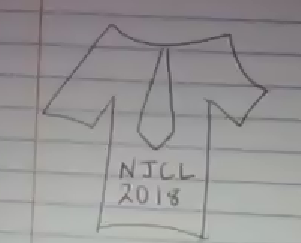 NJCL
2018